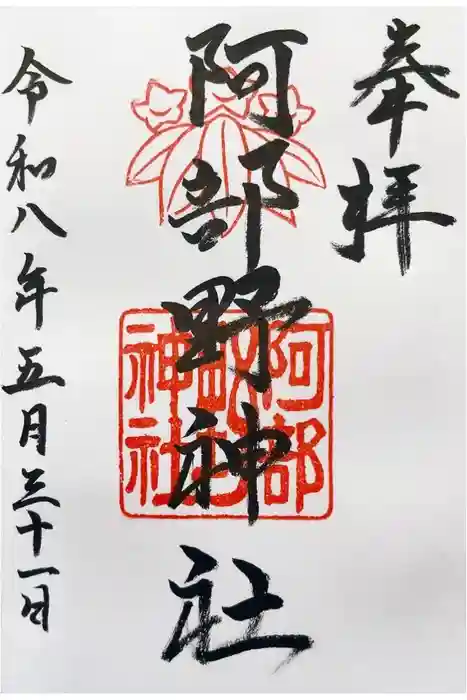 奉拝
阿部野神社
令和八年五月三十一日
阿部
神社